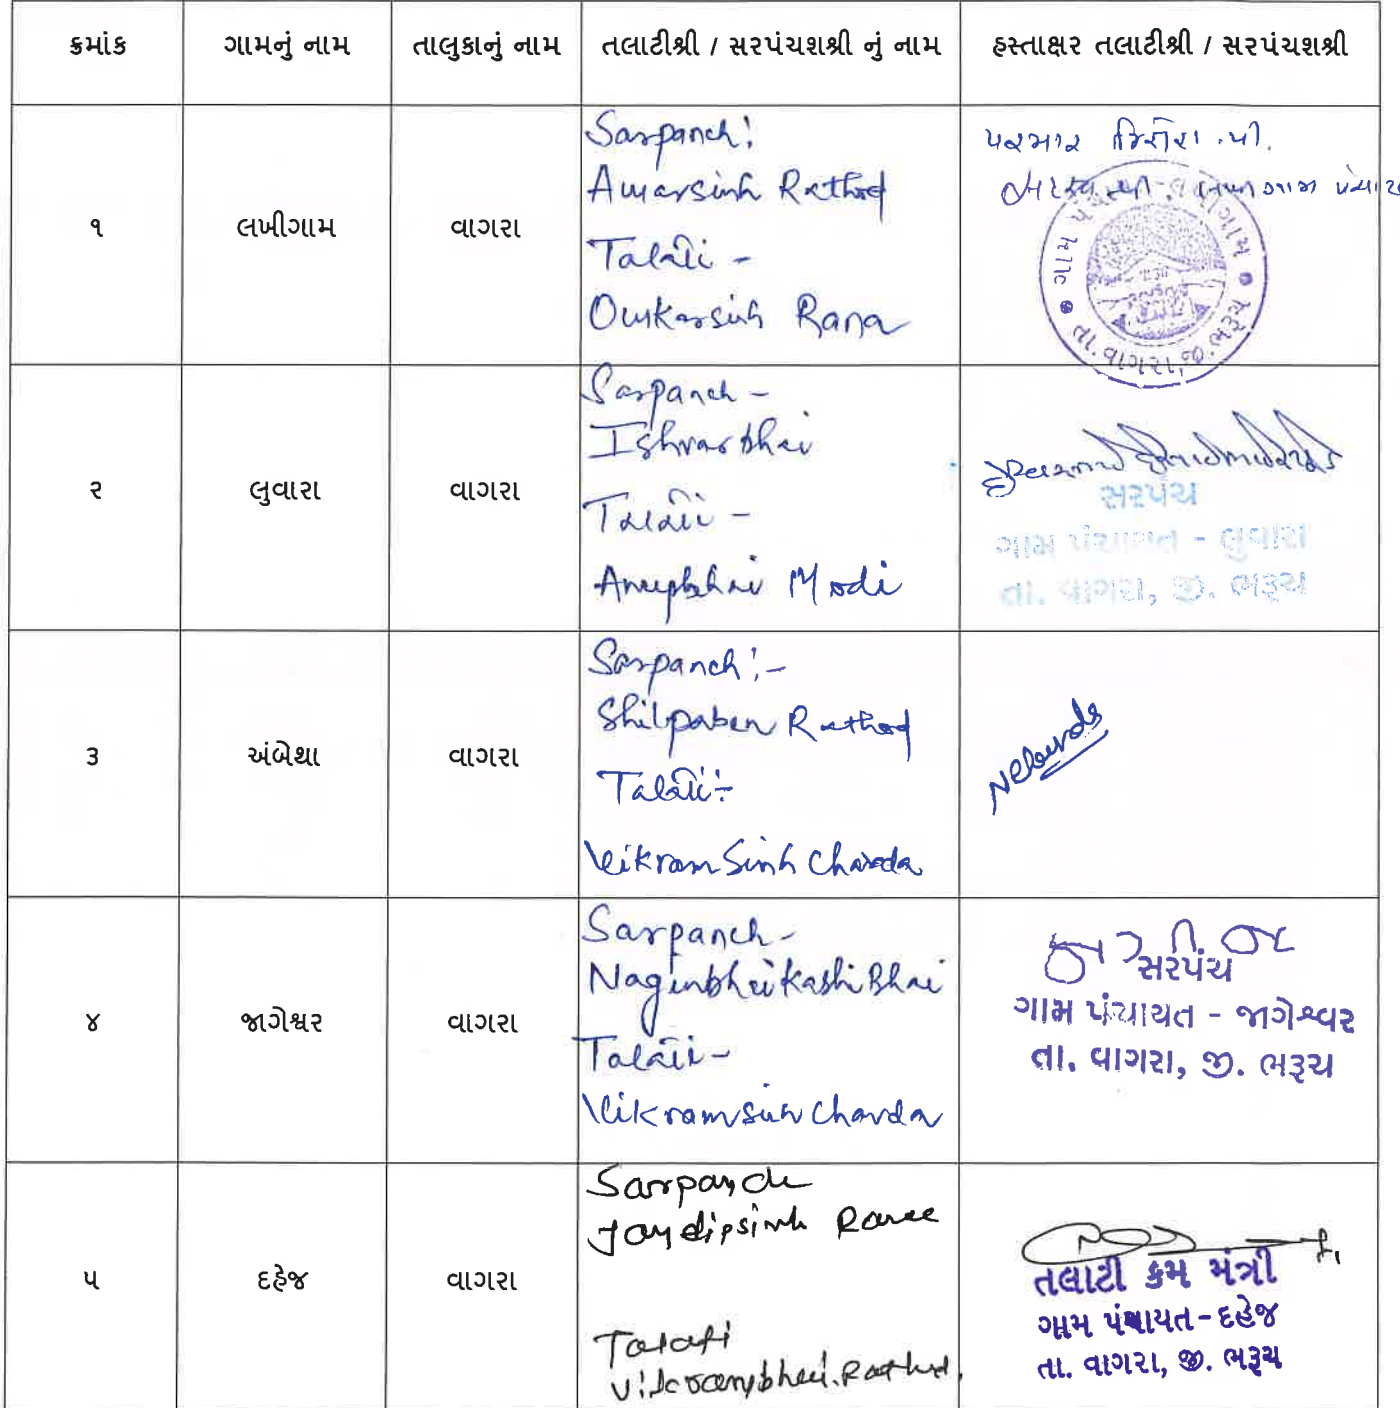 ક્રમાંક ગામનું નામ તાલુકાનું નામ તલાટીશ્રી / સરપંચશશ્રી નું નામ હસ્તાક્ષર તલાટીશ્રી / સરપંચશશ્રી
૧ લખીગામ વાગરા
Sarpanch:
Amarsinh Rathod
Talati -
Omkarsinh Rana
પરમાર .પી.
ગામ
તા. વાગરા, જી. ભરૂચ
૨ લુવારા વાગરા
Sarpanch -
Ishvarbhai
Talati -
Anupbhai Modi
સરપંચ
ગામ પંચાયત - લુવારા
તા. વાગરા, જી. ભરૂચ
૩ અંબેથા વાગરા
Sarpanch :-
Shilpaben Rathod
Talati :-
Vikram Sinh Chavda
૪ જાગેશ્વર વાગરા
Sarpanch -
Naginbhai Kashi Bhai
Talati -
Vikramsinh Chavda
સરપંચ
ગામ પંચાયત - જાગેશ્વર
તા. વાગરા, જી. ભરૂચ
૫ દહેજ વાગરા
Sarpanch
Jaydipsinh Rana
Talati
Vikrambhai. Rathod.
તલાટી ક્રમ મંત્રી
ગામ પંચાયત - દહેજ
તા. વાગરા, જી. ભરૂચ